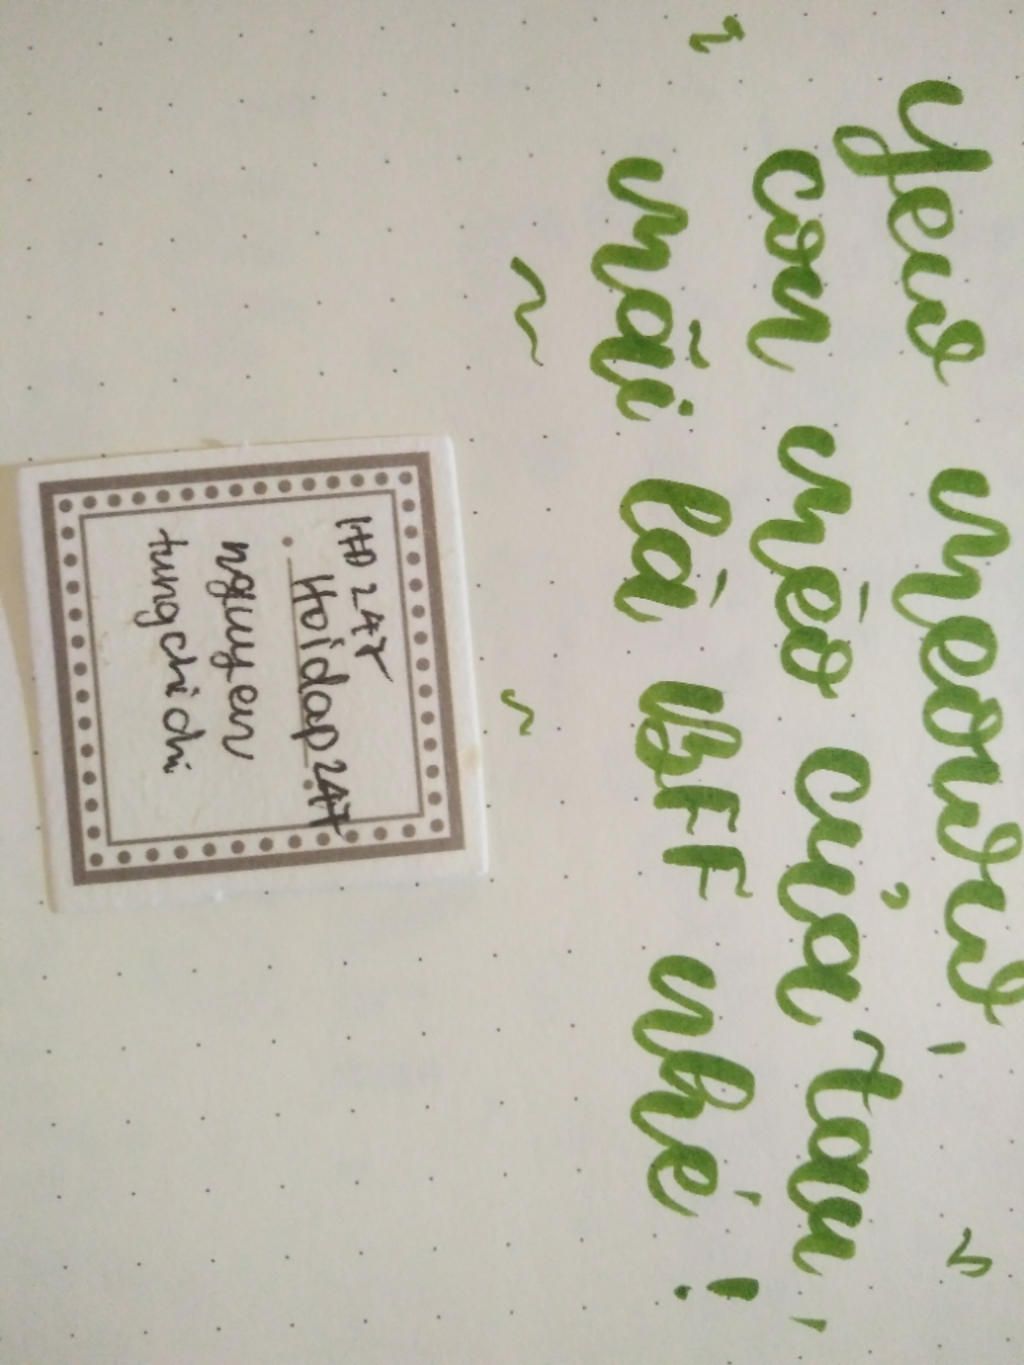 Yew meoww,
con mèo của tau,
mãi là BFF nhé!
HD 247
Hoidap247
nguyen
tungchichi